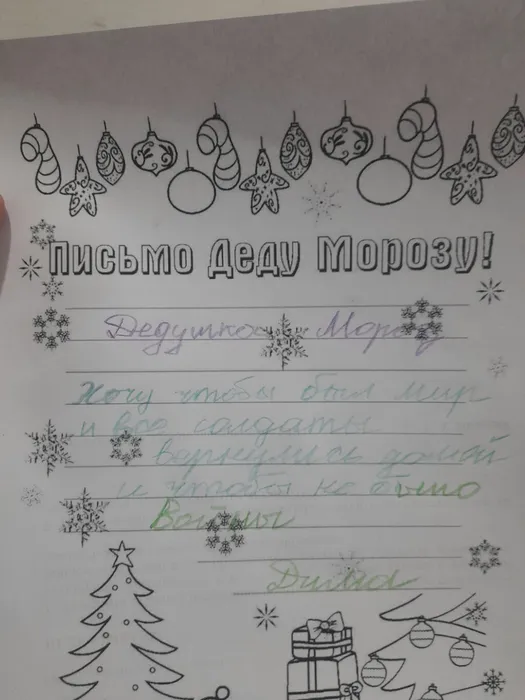 Письмо Деду Морозу!
Дедушка Мороз
Хочу чтобы был мир
и все солдаты
вернулись домой
и чтобы не было
Войны
Дима